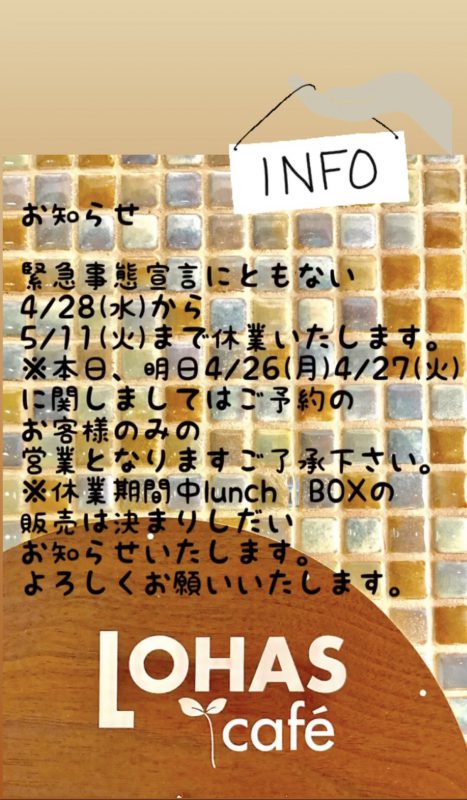 INFO
お知らせ
緊急事態宣言にともない
4/28(水)から
5/11(火)まで休業いたします。
※本日、明日4/26(月)4/27(火)
に関しましてはご予約の
お客様のみの
営業となりますご了承下さい。
※休業期間中lunch BOXの
販売は決まりしだい
お知らせいたします。
よろしくお願いいたします。
LOHAS
café